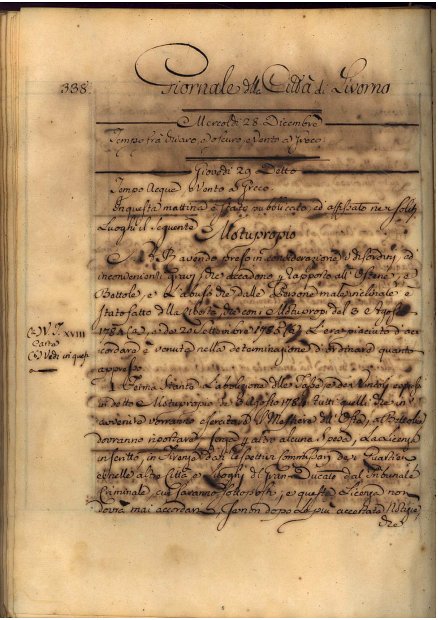 338.
Giornale della Città di Livorno
Mercoledì 28 Dicembre
Tempo frà chiaro, e oscuro e Vento a Greco
Giovedì 29 Detto
Tempo Acque e Vento a Greco
In questa mattina è stato pubblicato, ed affissato nei soliti
Luoghi il seguente Motuproprio
S. A. R. avendo preso in considerazione i disordini, ed
inconvenienti gravi che accadono rapporto all'Osterie, e
Bettole, e l'abuso che dalle Persone male inclinate è
stato fatto della libertà che con i Motupropri del 3 Agosto
(a) e de 20 Settembre (b) l'era piaciuto d'ac-
cordare è venuta nella determinazione d'ordinare quanto
appresso
(a) V. T. XVIII
Carte
(b) Vedi in questo
Ferma stante l'abolizione delle Tasse
in detto Motuproprio de 3 Agosto tutti quelli che in
avvenire vorranno esercitare il Mestiere dell'Oste,
dovranno riportare senza altro alcuna Spesa, la Licenza
in scritto, in Firenze dai respettivi Commissari dei Quartieri
e nelle altre Città, e Luoghi del Gran Ducato dal Tribunale
Criminale cui saranno sottoposti; e queste Licenze non
dovrà mai accordarsi se non dopo le più accertate Notizie
che